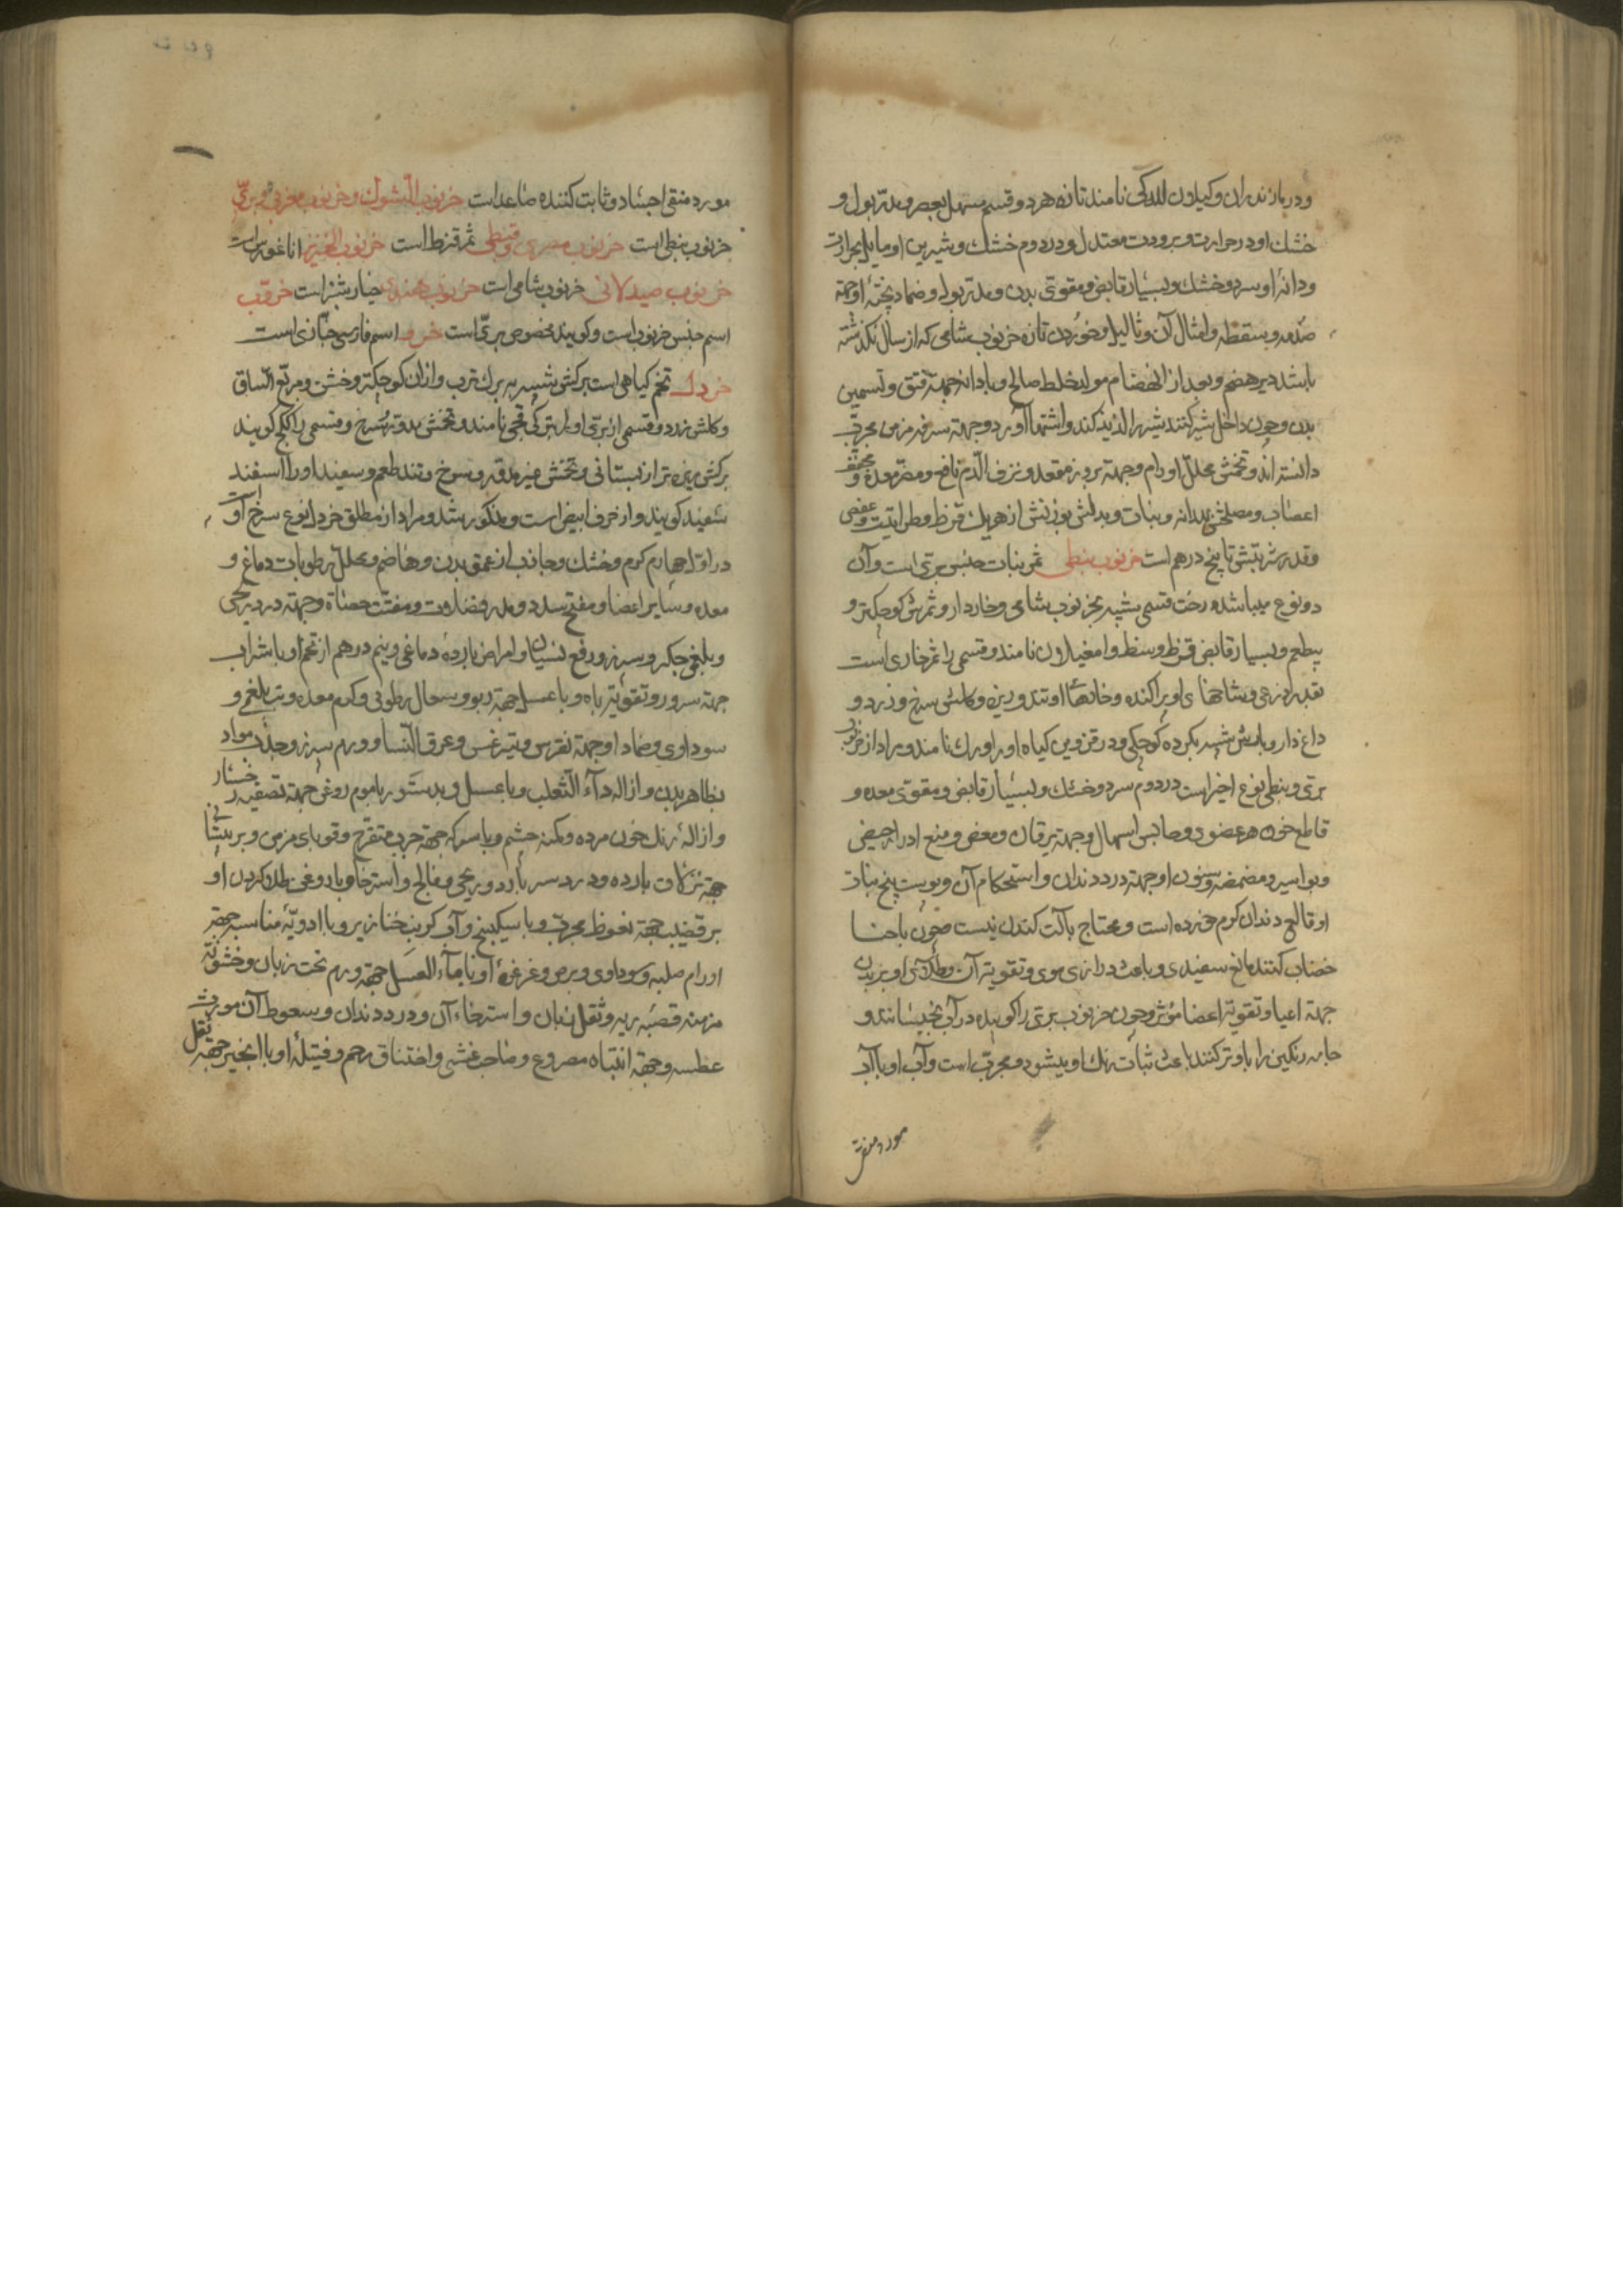 ودر مازندران و کیلان للکی نامند تازه هر دو قسم مسهل بعصر و مدر بول و
خشك او در حرارت و برودت معتدل و در دوم خشك و شیرین او مایل بحرارت
و دانهٔ او سرد و خشك و بسیار قابض و مقوی بدن و مدر بول و ضماد پختهٔ او جهة
صدمه و سقطه و امثال آن و ثالیل و خوردن تازه خرنوب شامی که از سال نکذشته
باشد دیر هضم و بعد از انهضام مولد خلط صالح و با دانه جهة فتق و تسمین
بدن و چون داخل شیر کنند شیر را لذیذ کند و اشتها آورد و جهة سرفه مزمن مجرب
دانسته اند و تخمش محلل اورام و جهة بروز مقعد و نزف الدم نافع و مضر معده و مجفف
اعصاب و مصلحش بهدانه و نبات و بدلش بوزنش از هریك قرظ و طراثیث و عفص
و قدر شربتش تا پنج درهم است خرنوب نبطی ثمر نبات جنس بری است و آن
دو نوع میباشد درخت قسمی شبیه بخرنوب شامی و خاردار و ثمرش کوچکتر و
بیطعم و بسیار قابض قرظ و سنط و امغیلان نامند و قسمی را ثمر خاری است
بقدر ذرعی و شاخهای او پراکنده و خارهٔا او تند و ریزه و کلش سرخ و زرد و
داغ دار و بارش شبیه بکرده کوچکی و در قزوین کیاه او را ورك نامند و مراد از خرنوب
بری و نبطی نوع اخیر است در دوم سرد و خشك و بسیار قابض و مقوی معده و
قاطع خون هر عضوی و حابس اسهال و جهة یرقان و مغص و منع ادرار حیض
و بواسیر و مضمضه و سنون او جهة درد دندان و استحکام آن و پوست پنج نبات
او قالع دندان کرم خورده است و محتاج بآلت کندن نیست و چون با حنا
خضاب کنند مانع سفیدی و باعث درازی موی و تقویة آن و طلای او بر بدن
جهة اعیا و تقویة اعضا مؤثر و چون خرنوب بری را کوبیده در آب بخیسانند و
جامه رنکین را باو تر کنند باعث ثبات رنك او میشود و مجرب است و آب او با آب
مورد منقی
مورد منقی اجساد و ثابت کننده صاعد است خرنوب الشوك و خرنوب مغربی و بری
خرنوب نبطی است خرنوب مصری و قبطی ثمر قرظ است خرنوب الخنزیر اناغورس است
خرنوب صیدلانی خرنوب شامی است خرنوب هندی خیارشنبر است خروب
اسم جنس خرنوب است و کویند مخصوص بری است خرو اسم فارسی خبازی است
خردل تخم کیاهی است برکش شبیه ببرك ترب و از ان کوچکتر و خشن و مربع الساق
و کلش زرد و قسمی از بری او را بترکی قچی نامند و تخمش مدور سرخ و قسمی را کویند
برکش ریزه تر از بستانی و تخمش غیر مدور و سرخ و تند طعم و سفید او را اسفند
سفید کویند و از حرف ابیض است و مذکور شد و مراد از مطلق خردل نوع سرخ آنست
در اول چهارم کرم و خشك و جاذب از عمق بدن و هاضم و محلل رطوبات دماغ و
معده و سایر اعضا و مفتح سدد و مدر فضلات و مفتت حصاة و جهة درد ریحی
و بلغمی جکر و سپرز و رفع نسیان و امراض باردهٔ دماغی و نیم درهم از تخم او با شراب
جهة سرور و تقویة باه و با عسل جهة ربو و سعال رطوبی و کرم معده و تب بلغمی و
سوداوی و ضماد او جهة نقرس و لیثرغس و عرق النسا و ورم سپرز و جذب مواد
بظاهر بدن و ازاله داء الثعلب و با عسل و بدستور با موم روغن جهة تصفیهٔ رخسار
و ازالهٔ رنك خون مرده و کمنه چشم و با سرکه جهة جرب متقرح و قوبای مزمن و بر پیشانی
جهة نزلات بارده و درد سر بارد و ریحی و فالج و استرخا و با روغن طلا کردن او
بر قضیب جهة نعوظ مجرب و با سکبینج و آب کرنب خنازیر و با ادویهٔ مناسبه جهة
اورام صلبه و سوداوی و برص و غرغرهٔ او با ماء العسل جهة ورم تحت زبان و خشونة
مزمنه قصبه ریه و ثقل زبان و استرخاء آن و درد دندان و سعوط آن مورث
عطسه و جهة انتباه مصروع و صاحب غشی و اختناق رحم و فتیلهٔ او با انجیر جهة ثقل